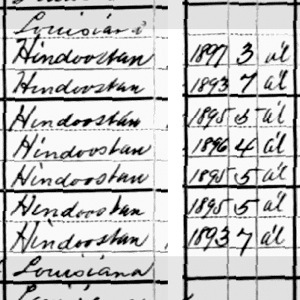 Louisiana
Hindoostan 1897 3 al
Hindoostan 1893 7 al
Hindoostan 1895 5 al
Hindoostan 1896 4 al
Hindoostan 1895 5 al
Hindoostan 1895 5 al
Hindoostan 1893 7 al
Louisiana